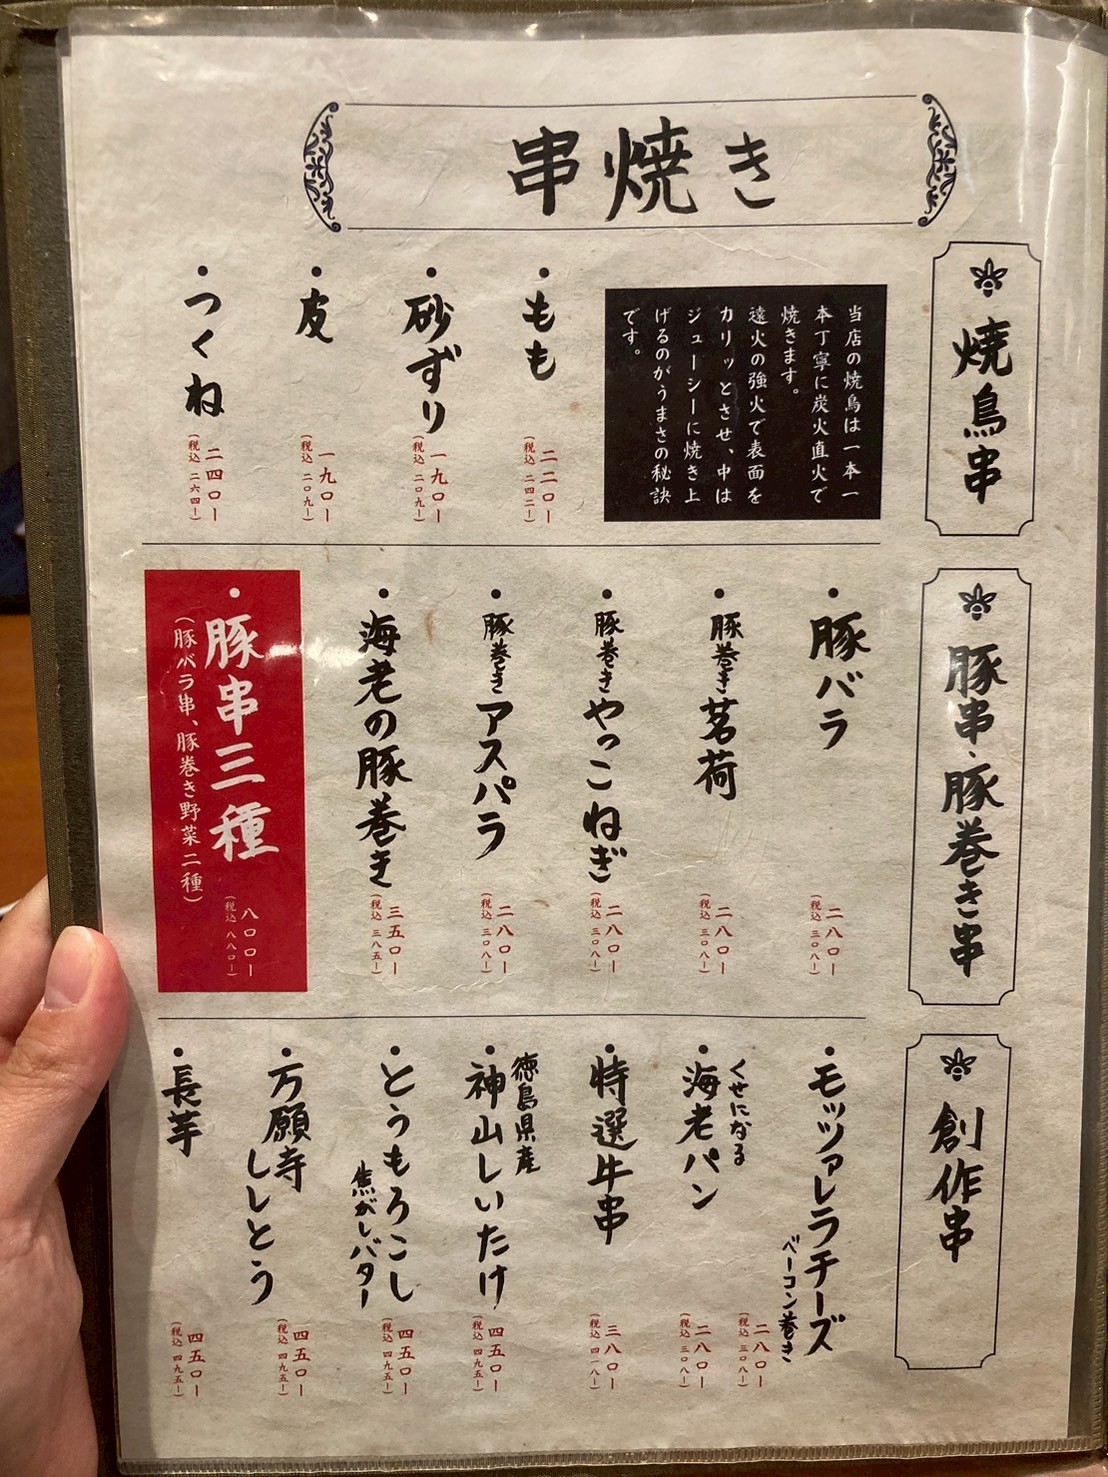 串焼き
焼鳥串
当店の焼鳥は一本一
本丁寧に炭火直火で
焼きます。
遠火の強火で表面を
カリッとさせ、中は
ジューシーに焼き上
げるのがうまさの秘訣
です。
・もも
二二〇ー
(税込 二四二ー)
・砂ずり
一九〇ー
(税込 二〇九ー)
・皮
一九〇ー
(税込 二〇九ー)
・つくね
二四〇ー
(税込 二六四ー)
豚串、豚巻き串
・豚バラ
二八〇ー
(税込 三〇八ー)
・豚巻き茗荷
二八〇ー
(税込 三〇八ー)
・豚巻きやっこねぎ
二八〇ー
(税込 三〇八ー)
・豚巻きアスパラ
二八〇ー
(税込 三〇八ー)
・海老の豚巻き
三五〇ー
(税込 三八五ー)
・豚串三種
(豚バラ串、豚巻き野菜二種)
八〇〇ー
(税込 八八〇ー)
創作串
・モッツァレラチーズ
ベーコン巻き
二八〇ー
(税込 三〇八ー)
くせになる
・海老パン
二八〇ー
(税込 三〇八ー)
・特選牛串
三八〇ー
(税込 四一八ー)
徳島県産
・神山しいたけ
四五〇ー
(税込 四九五ー)
・とうもろこし
焦がしバター
四五〇ー
(税込 四九五ー)
・万願寺
ししとう
四五〇ー
(税込 四九五ー)
・長芋
四五〇ー
(税込 四九五ー)